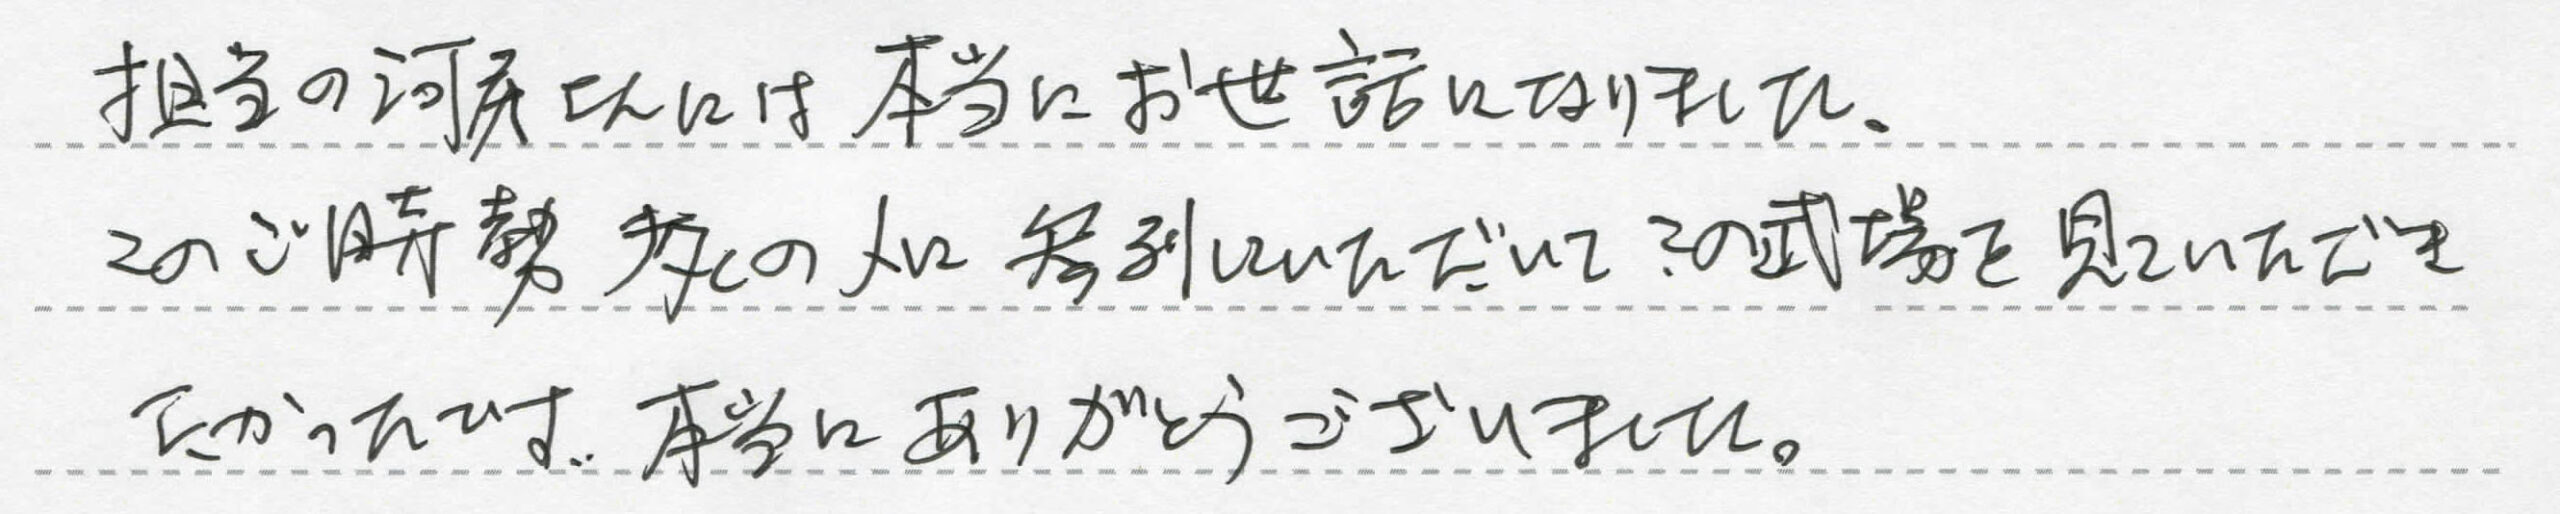 担当の河原さんには本当にお世話になりました。
このご時勢多くの人に参列していただいてこの式場を見ていただき
たかったです。本当にありがとうございました。